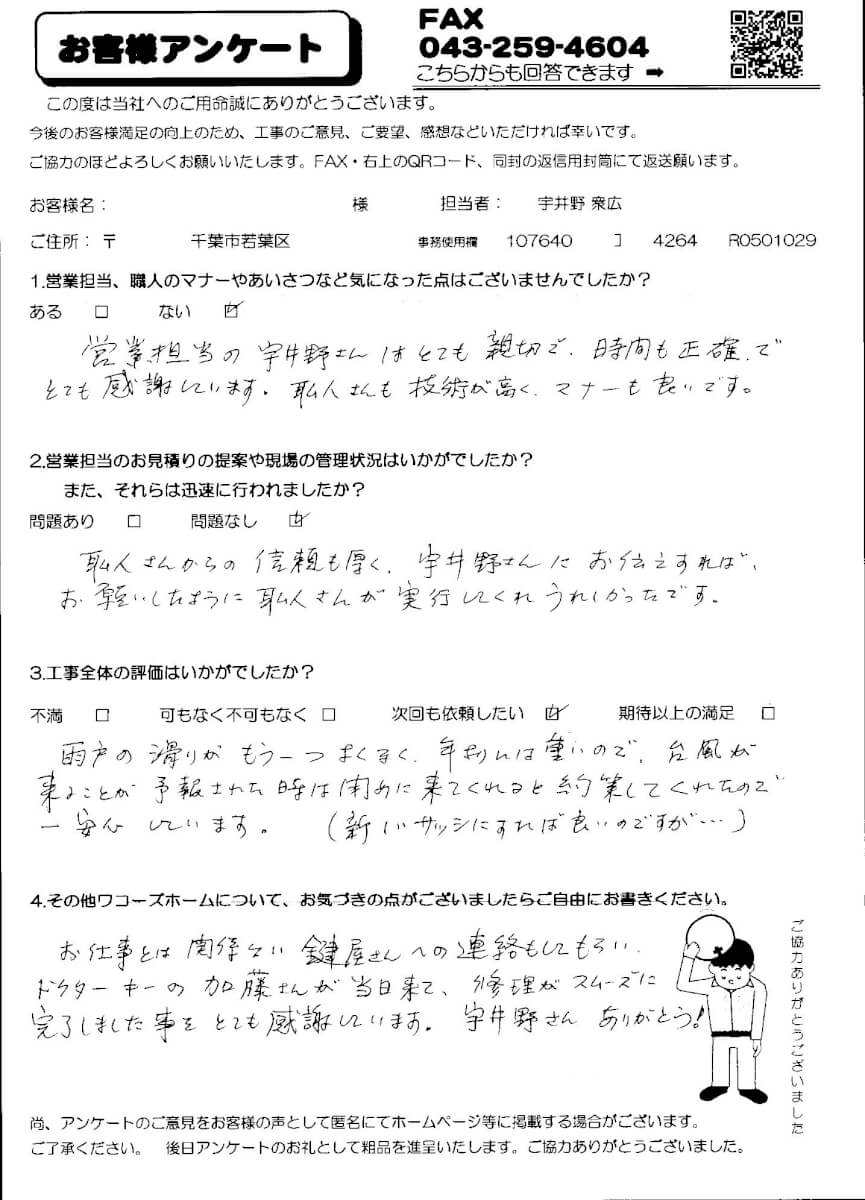 お客様アンケート
FAX
043-259-4604
こちらからも回答できます ➡
この度は当社へのご用命誠にありがとうございます。
今後のお客様満足の向上のため、工事のご意見、ご要望、感想などいただければ幸いです。
ご協力のほどよろしくお願いいたします。FAX・右上のQRコード、同封の返信用封筒にて返送願います。
お客様名： 様 担当者： 宇井野 衆広
ご住所：〒 千葉市若葉区 事務使用欄 107640 コ 4264 R0501029
1.営業担当、職人のマナーやあいさつなど気になった点はございませんでしたか？
ある □ ない ☑
営業担当の宇井野さんはとても親切で、時間も正確で
とても感謝しています。職人さんも技術が高く、マナーも良いです。
2.営業担当のお見積りの提案や現場の管理状況はいかがでしたか？
また、それらは迅速に行われましたか？
問題あり □ 問題なし ☑
職人さんからの信頼も厚く、宇井野さんにお伝えすれば、
お願いしたように職人さんが実行してくれうれしかったです。
3.工事全体の評価はいかがでしたか？
不満 □ 可もなく不可もなく □ 次回も依頼したい ☑ 期待以上の満足 □
雨戸の滑りがもう一つよくなく、年よりには重いので、台風が
来ることが予報された時は閉めに来てくれると約束してくれたので
一安心しています。（新しいサッシにすれば良いのですが…）
4.その他ワコーズホームについて、お気づきの点がございましたらご自由にお書きください。
お仕事とは関係ない鍵屋さんへの連絡もしてもらい、
ドクターキーの加藤さんが当日来て、修理がスムーズに
完了しました事をとても感謝しています。宇井野さんありがとう！
ご協力ありがとうございました
尚、アンケートのご意見をお客様の声として匿名にてホームページ等に掲載する場合がございます。
ご了承ください。 後日アンケートのお礼として粗品を進呈いたします。ご協力ありがとうございました。